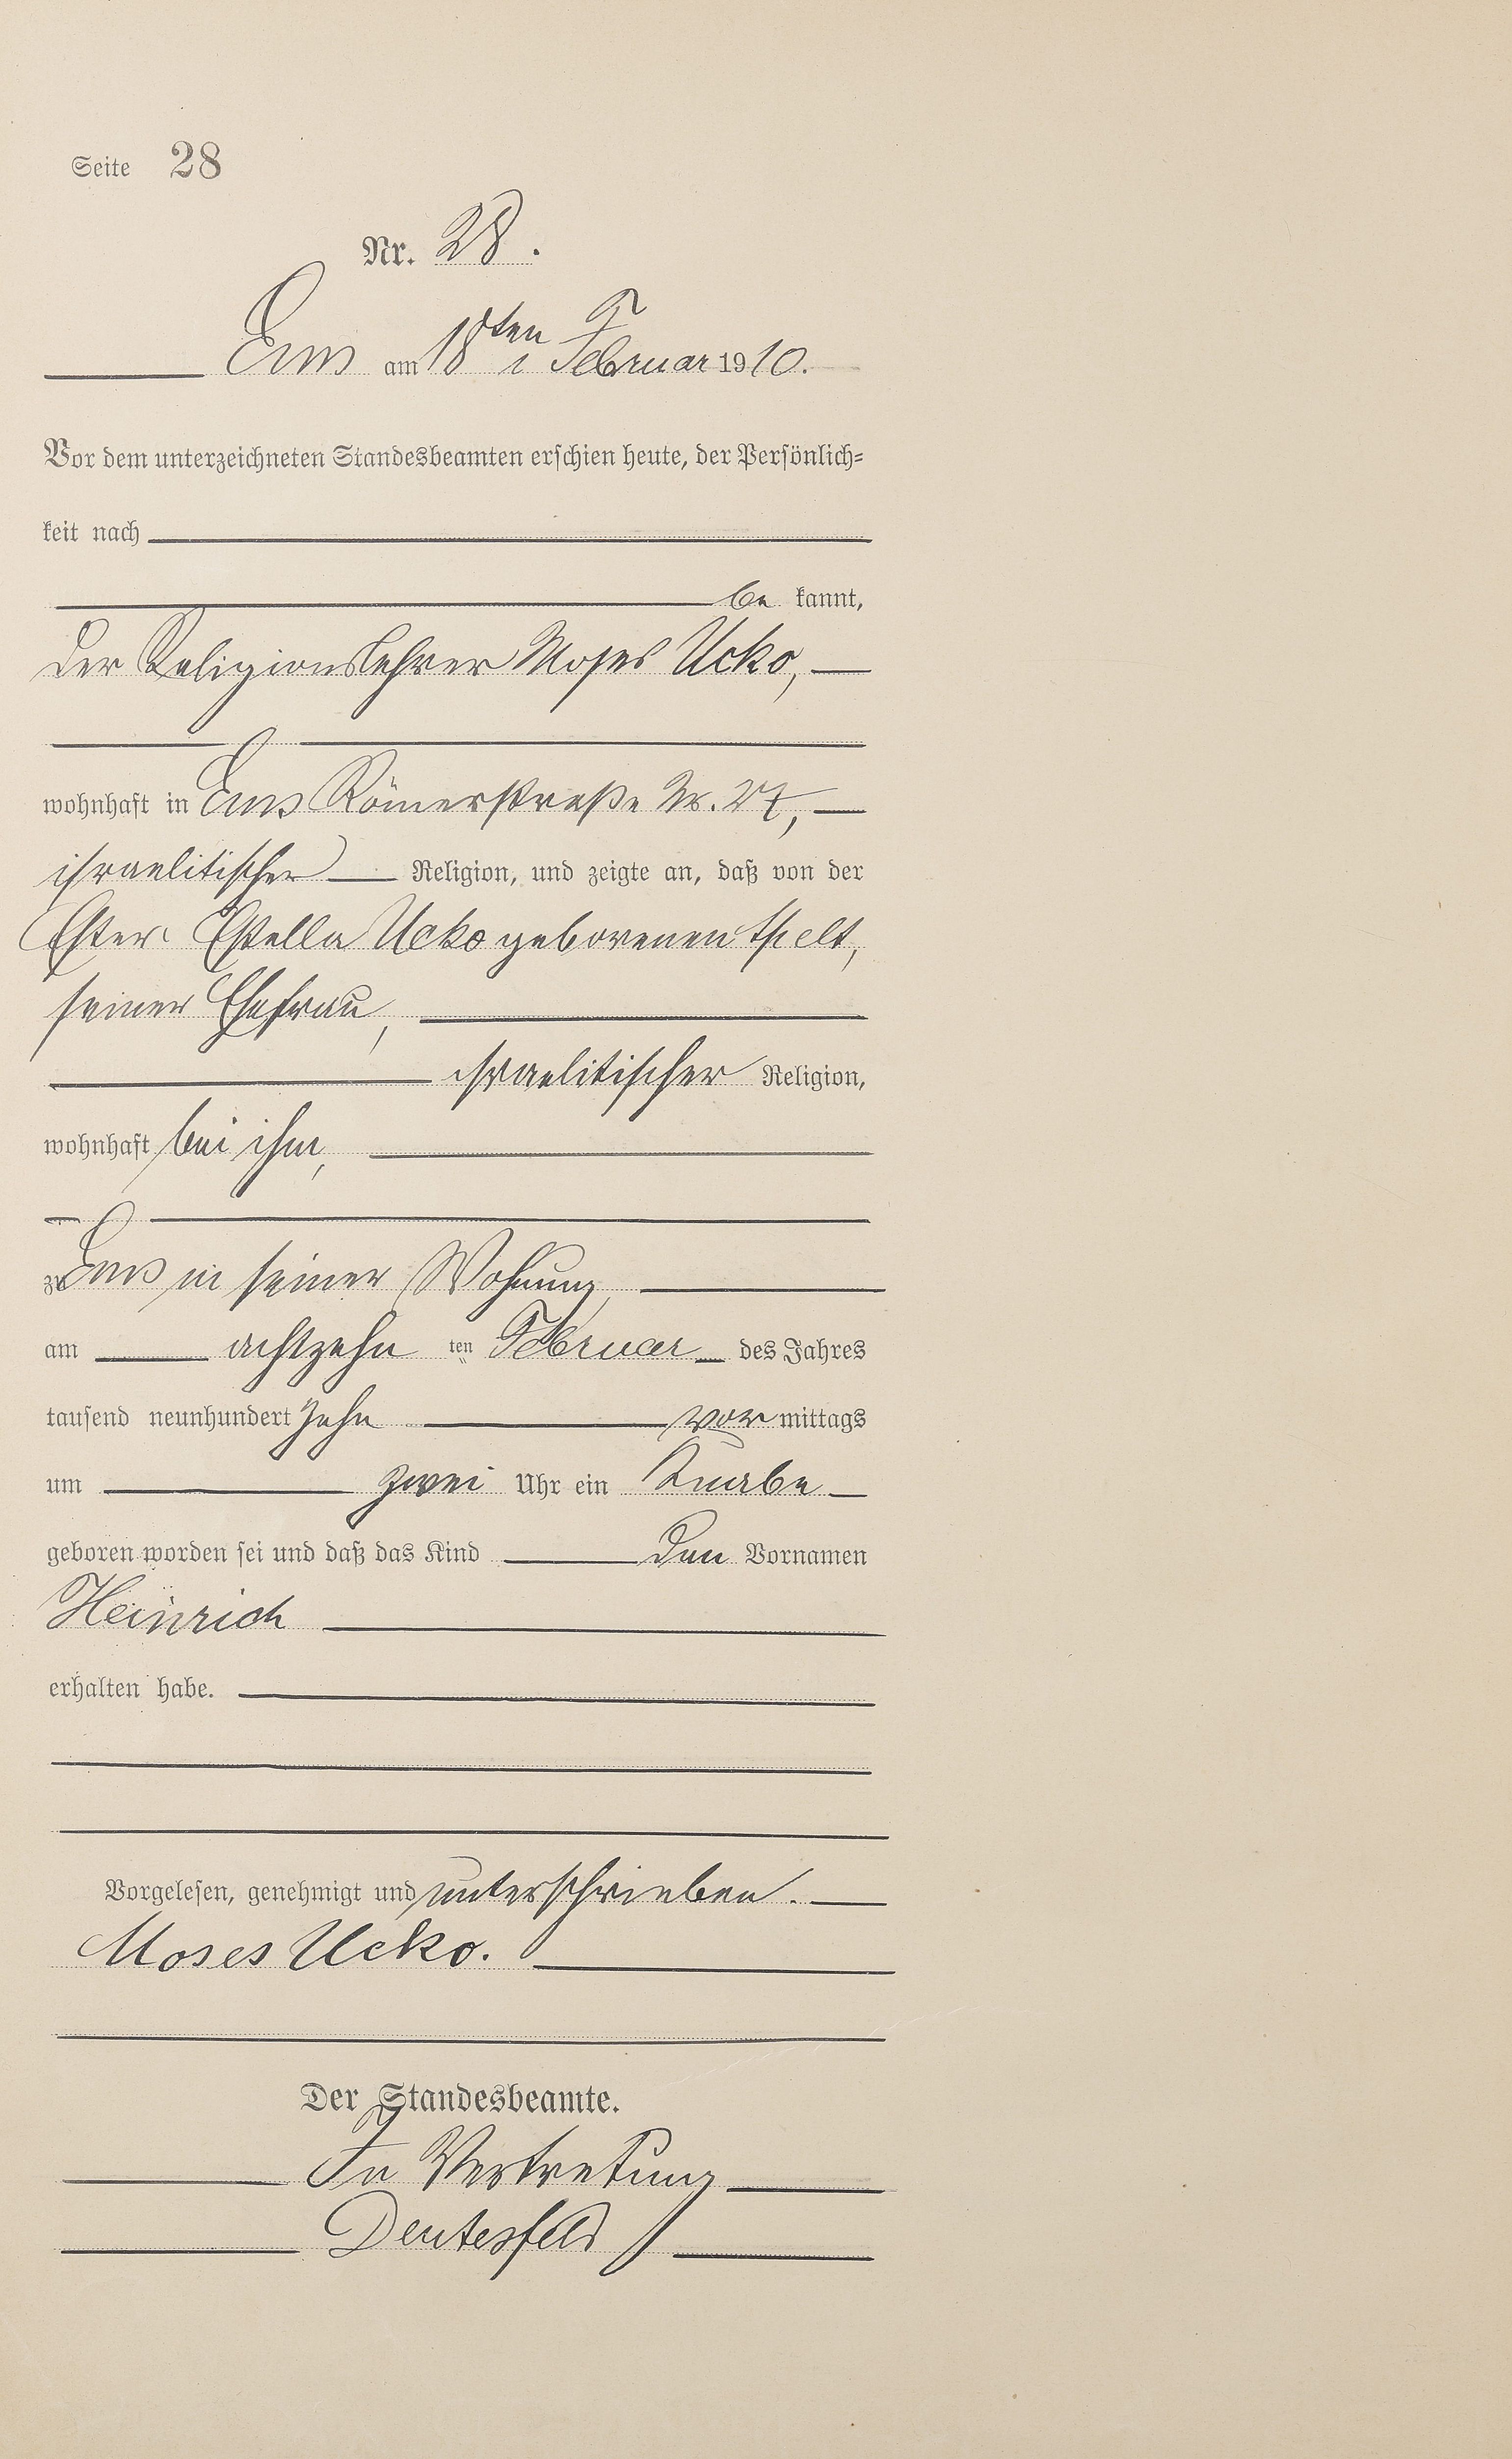 Seite 28
Nr. 28.
Ems am 18ten Februar 1910.
Vor dem unterzeichneten Standesbeamten erschien heute, der Persönlich-
keit nach
be kannt,
der Religionslehrer Moses Ucko,
wohnhaft in Ems Römerstraße Nr. 27,
israelitischer Religion, und zeigte an, daß von der
Ester Estella Ucko geborenen
seiner Ehefrau,
israelitischer Religion,
wohnhaft bei ihm,
zu Ems in seiner Wohnung,
am achtzehn ten Februar des Jahres
tausend neunhundert zehn vor mittags
um zwei Uhr ein Knabe
geboren worden sei und daß das Kind den Vornamen
Heinrich
erhalten habe.
Vorgelesen, genehmigt und unterschrieben.
Moses Ucko.
Der Standesbeamte.
In Vertretung
Deutesfeld